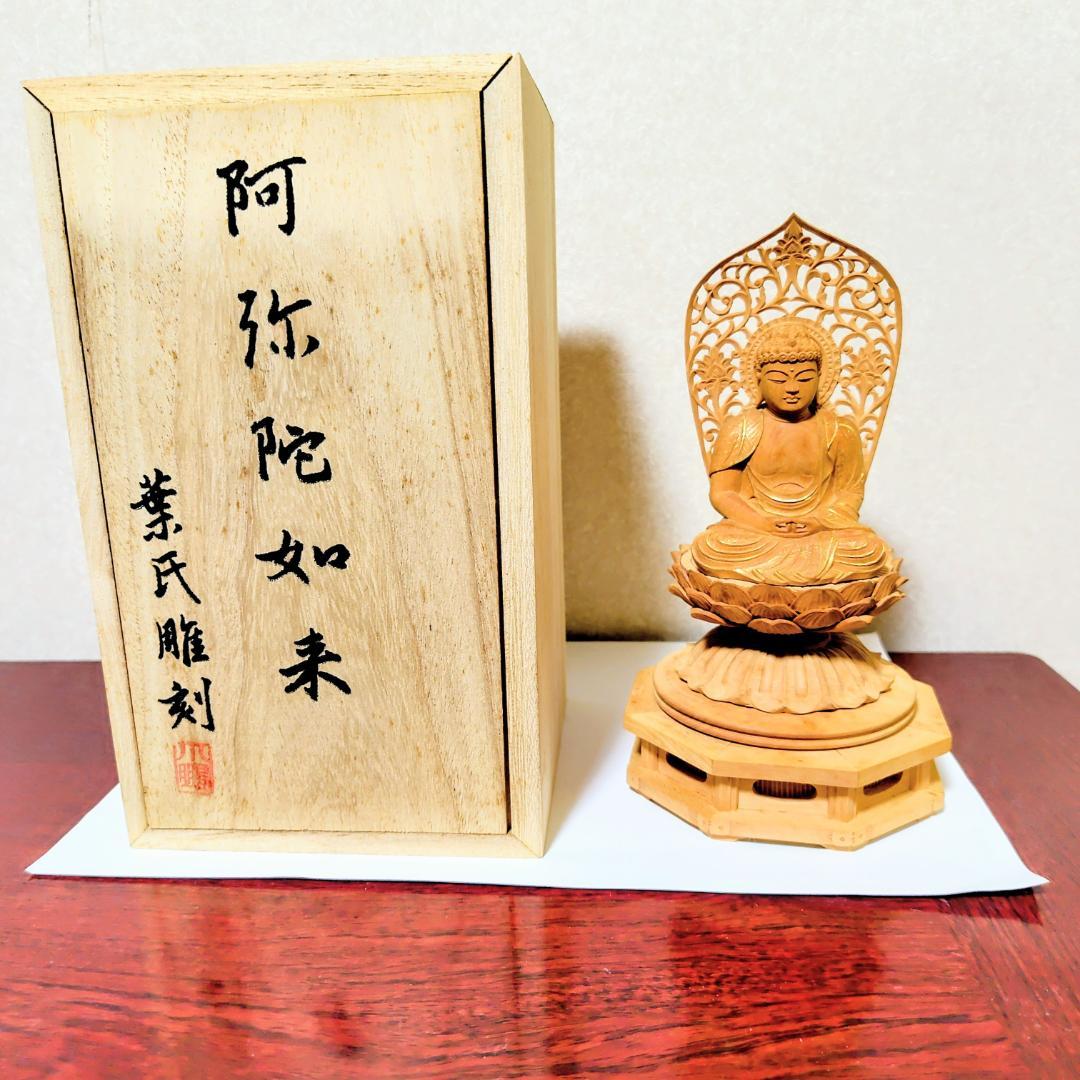 阿弥陀如来
葉氏雕刻